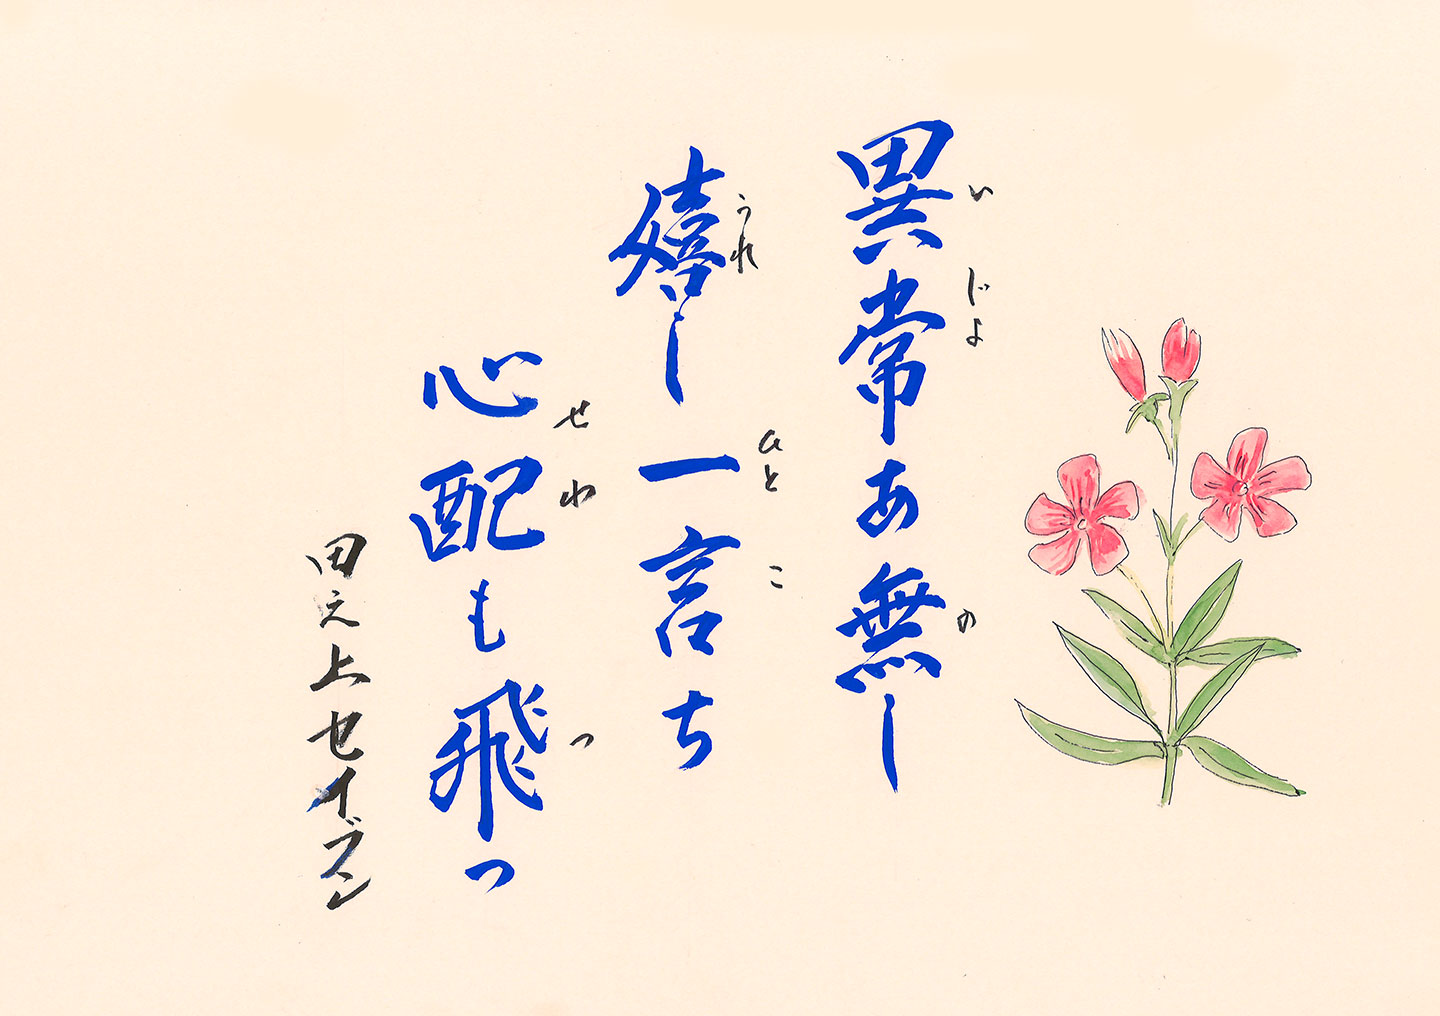 異常あ無し
いじよ の
嬉し一言ち
うれ ひとこ
心配も飛っ
せわ つ
田之上セイブン